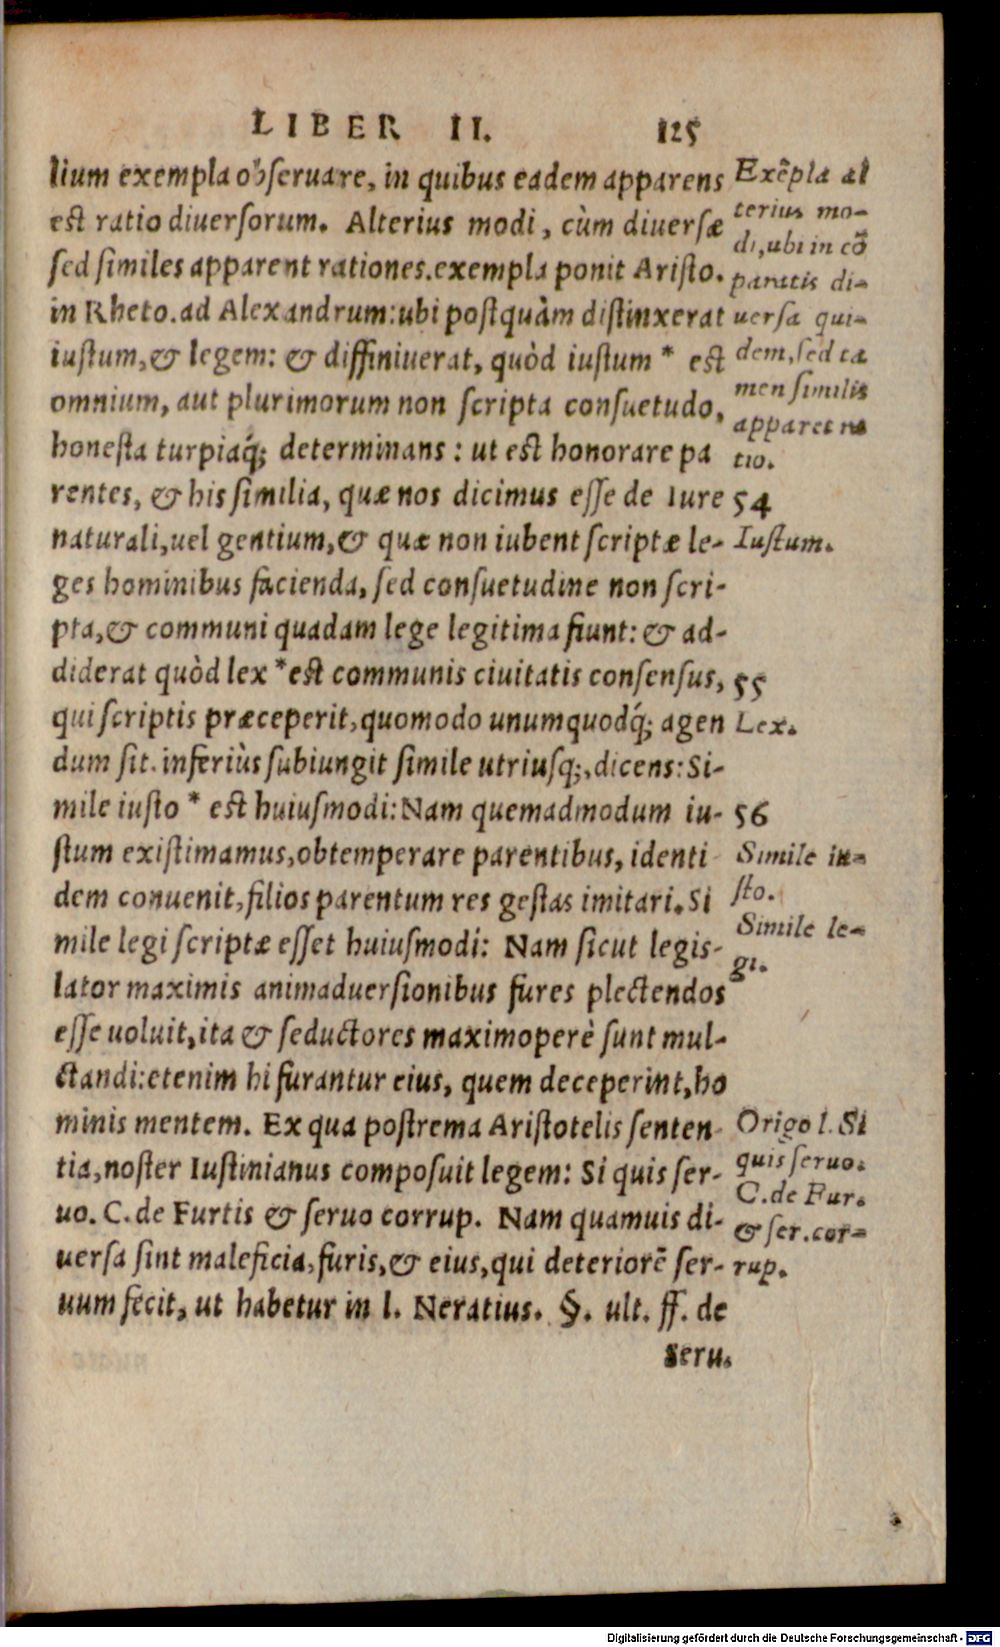 LIBER II. 125
lium exempla obſeruare, in quibus eadem apparens
eſt ratio diuerſorum. Alterius modi, cùm diuerſæ
ſed ſimiles apparent rationes. exempla ponit Ariſto.
in Rheto. ad Alexandrum: ubi poſtquàm diſtinxerat
iuſtum, & legem: & diffiniuerat, quòd iuſtum * eſt
omnium, aut plurimorum non ſcripta conſuetudo,
honeſta turpiaq́; determinans: ut eſt honorare pa
rentes, & his ſimilia, quæ nos dicimus eſſe de Iure
naturali, uel gentium, & quæ non iubent ſcriptæ le-
ges hominibus facienda, ſed conſuetudine non ſcri-
pta, & communi quadam lege legitima fiunt: & ad-
diderat quòd lex * eſt communis ciuitatis conſenſus,
qui ſcriptis præceperit, quomodo unumquodq́; agen
dum ſit. inferiùs ſubiungit ſimile utriuſq;, dicens: Si-
mile iuſto * eſt huiuſmodi: Nam quemadmodum iu-
ſtum exiſtimamus, obtemperare parentibus, identi
dem conuenit, filios parentum res geſtas imitari. Si
mile legi ſcriptæ eſſet huiuſmodi: Nam ſicut legis-
lator maximis animaduerſionibus fures plectendos
eſſe uoluit, ita & ſeductores maximoperè ſunt mul-
ctandi: etenim hi furantur eius, quem deceperint, ho
minis mentem. Ex qua poſtrema Ariſtotelis ſenten
tia, noſter Iuſtinianus compoſuit legem: Si quis ſer-
uo. C. de Furtis & ſeruo corrup. Nam quamuis di-
uerſa ſint maleficia, furis, & eius, qui deteriorẽ ſer-
uum fecit, ut habetur in l. Neratius. §. ult. ff. de
seru.
Exẽpla al
terius mo-
di, ubi in cõ
paratis di-
uerſa qui-
dem, ſed ta
men ſimilis
apparet ra
tio.
54
Iuſtum.
55
Lex.
56
Simile iu-
ſto.
Simile le-
gi.
Origo l. Si
quis ſeruo.
C. de Fur.
& ſer. cor-
rup.
Digitalisierung gefördert durch die Deutsche Forschungsgemeinschaft - DFG